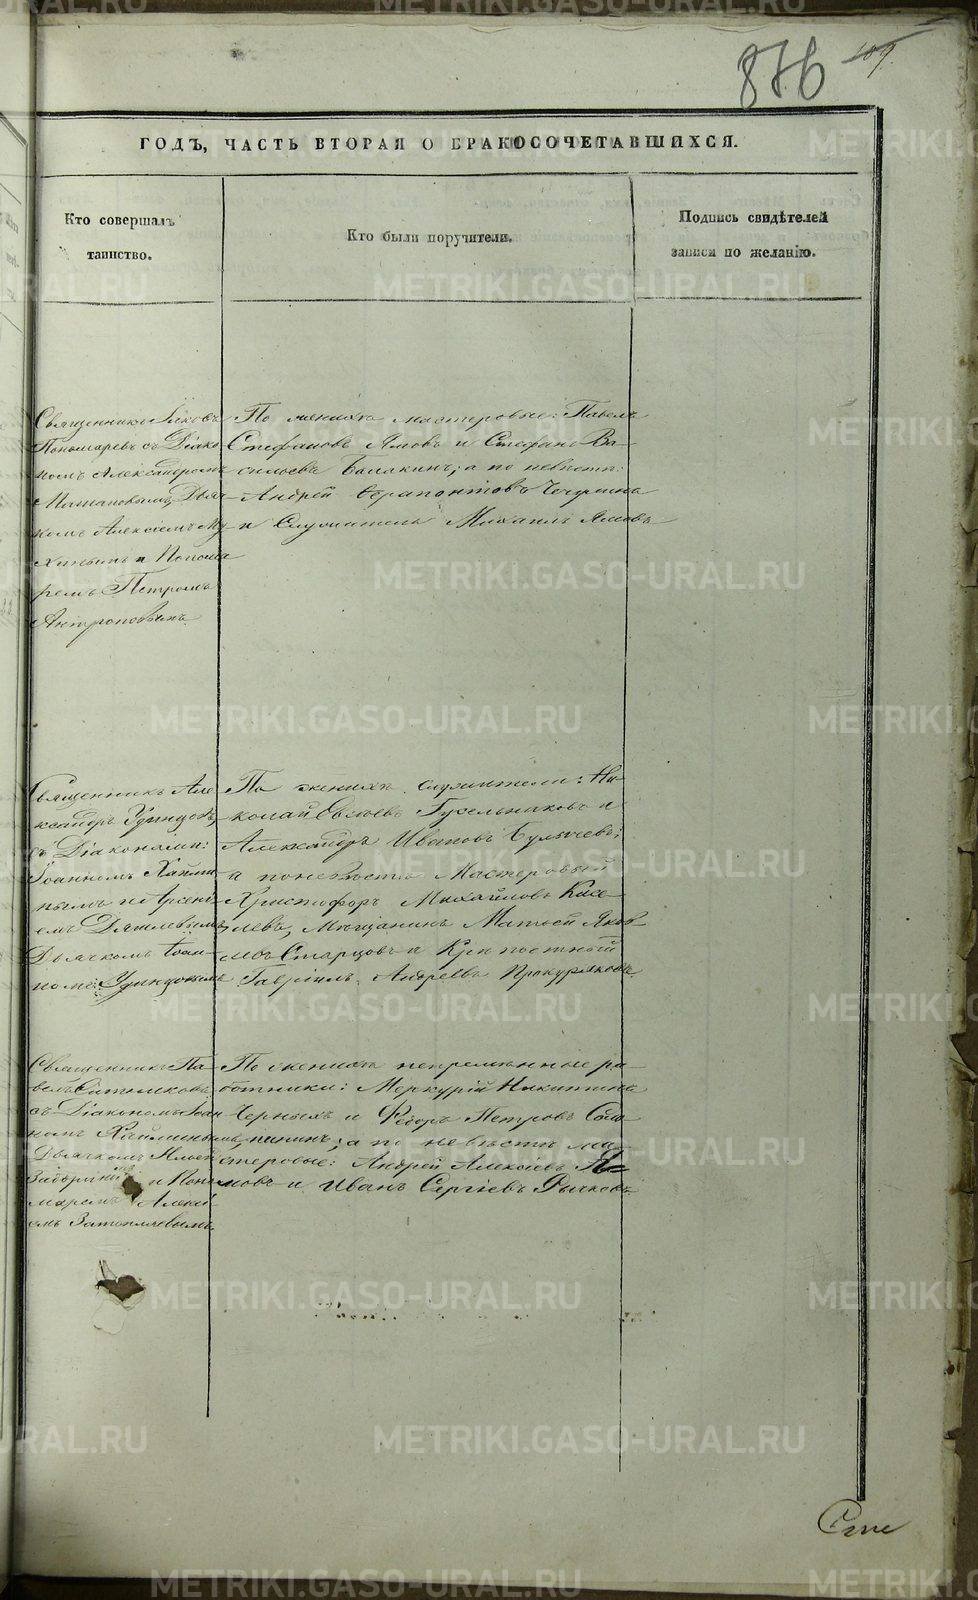 876 109.
ГОДЪ, ЧАСТЬ ВТОРАЯ О БРАКОСОЧЕТАВШИХСЯ.
Кто совершалъ
таинство.
Кто были поручители.
Подпись свидѣтелей
записи по желанію.
Священникъ Іяковъ
Пономаревъ съ Діако-
номъ Александромъ
Дьяч-
комъ Алексѣемъ Му-
хинымъ и Понома
ремъ Петромъ
Антроповымъ
По женихѣ мастеровые: Павелъ
Стефановъ Ямовъ и Стефанъ Ва-
сильевъ Балакинъ; а по невѣстѣ:
Андрей Ферапонтовъ
и Служитель Михаилъ Ямовъ
Священникъ Але
ксандръ Удинцовъ,
съ Діаконами:
Іоанномъ Хаили
нымъ и Арсені-
емъ Дягилевымъ,
Дьячкомъ Іоан-
номъ Удинцовымъ
По женихѣ служители: Ни-
колай Евсѣевъ Гусельниковъ и
Александръ Ивановъ Булычевъ;
а по невѣстѣ Мастеровый
Христофоръ Михайловъ Кисе-
левъ, Мѣщанинъ Матвей Яков
левъ Старцовъ и Крѣпостный
Гавріилъ Андреевъ Прокуряковъ.
Священникъ Па-
велъ Ситниковъ
съ Діакономъ Іоан
номъ Хаилинымъ
Дьячкомъ
и Поно
маремъ Алексѣ
емъ Затопляевымъ
По женихѣ непремѣнные ра-
ботники: Меркурій Никитинъ
Черныхъ и Федоръ Петровъ
а по невѣстѣ ма
стеровые: Андрей Алексіевъ Я-
мовъ и Иванъ Сергіевъ Рычковъ
METRIKI.GASO-URAL.RU